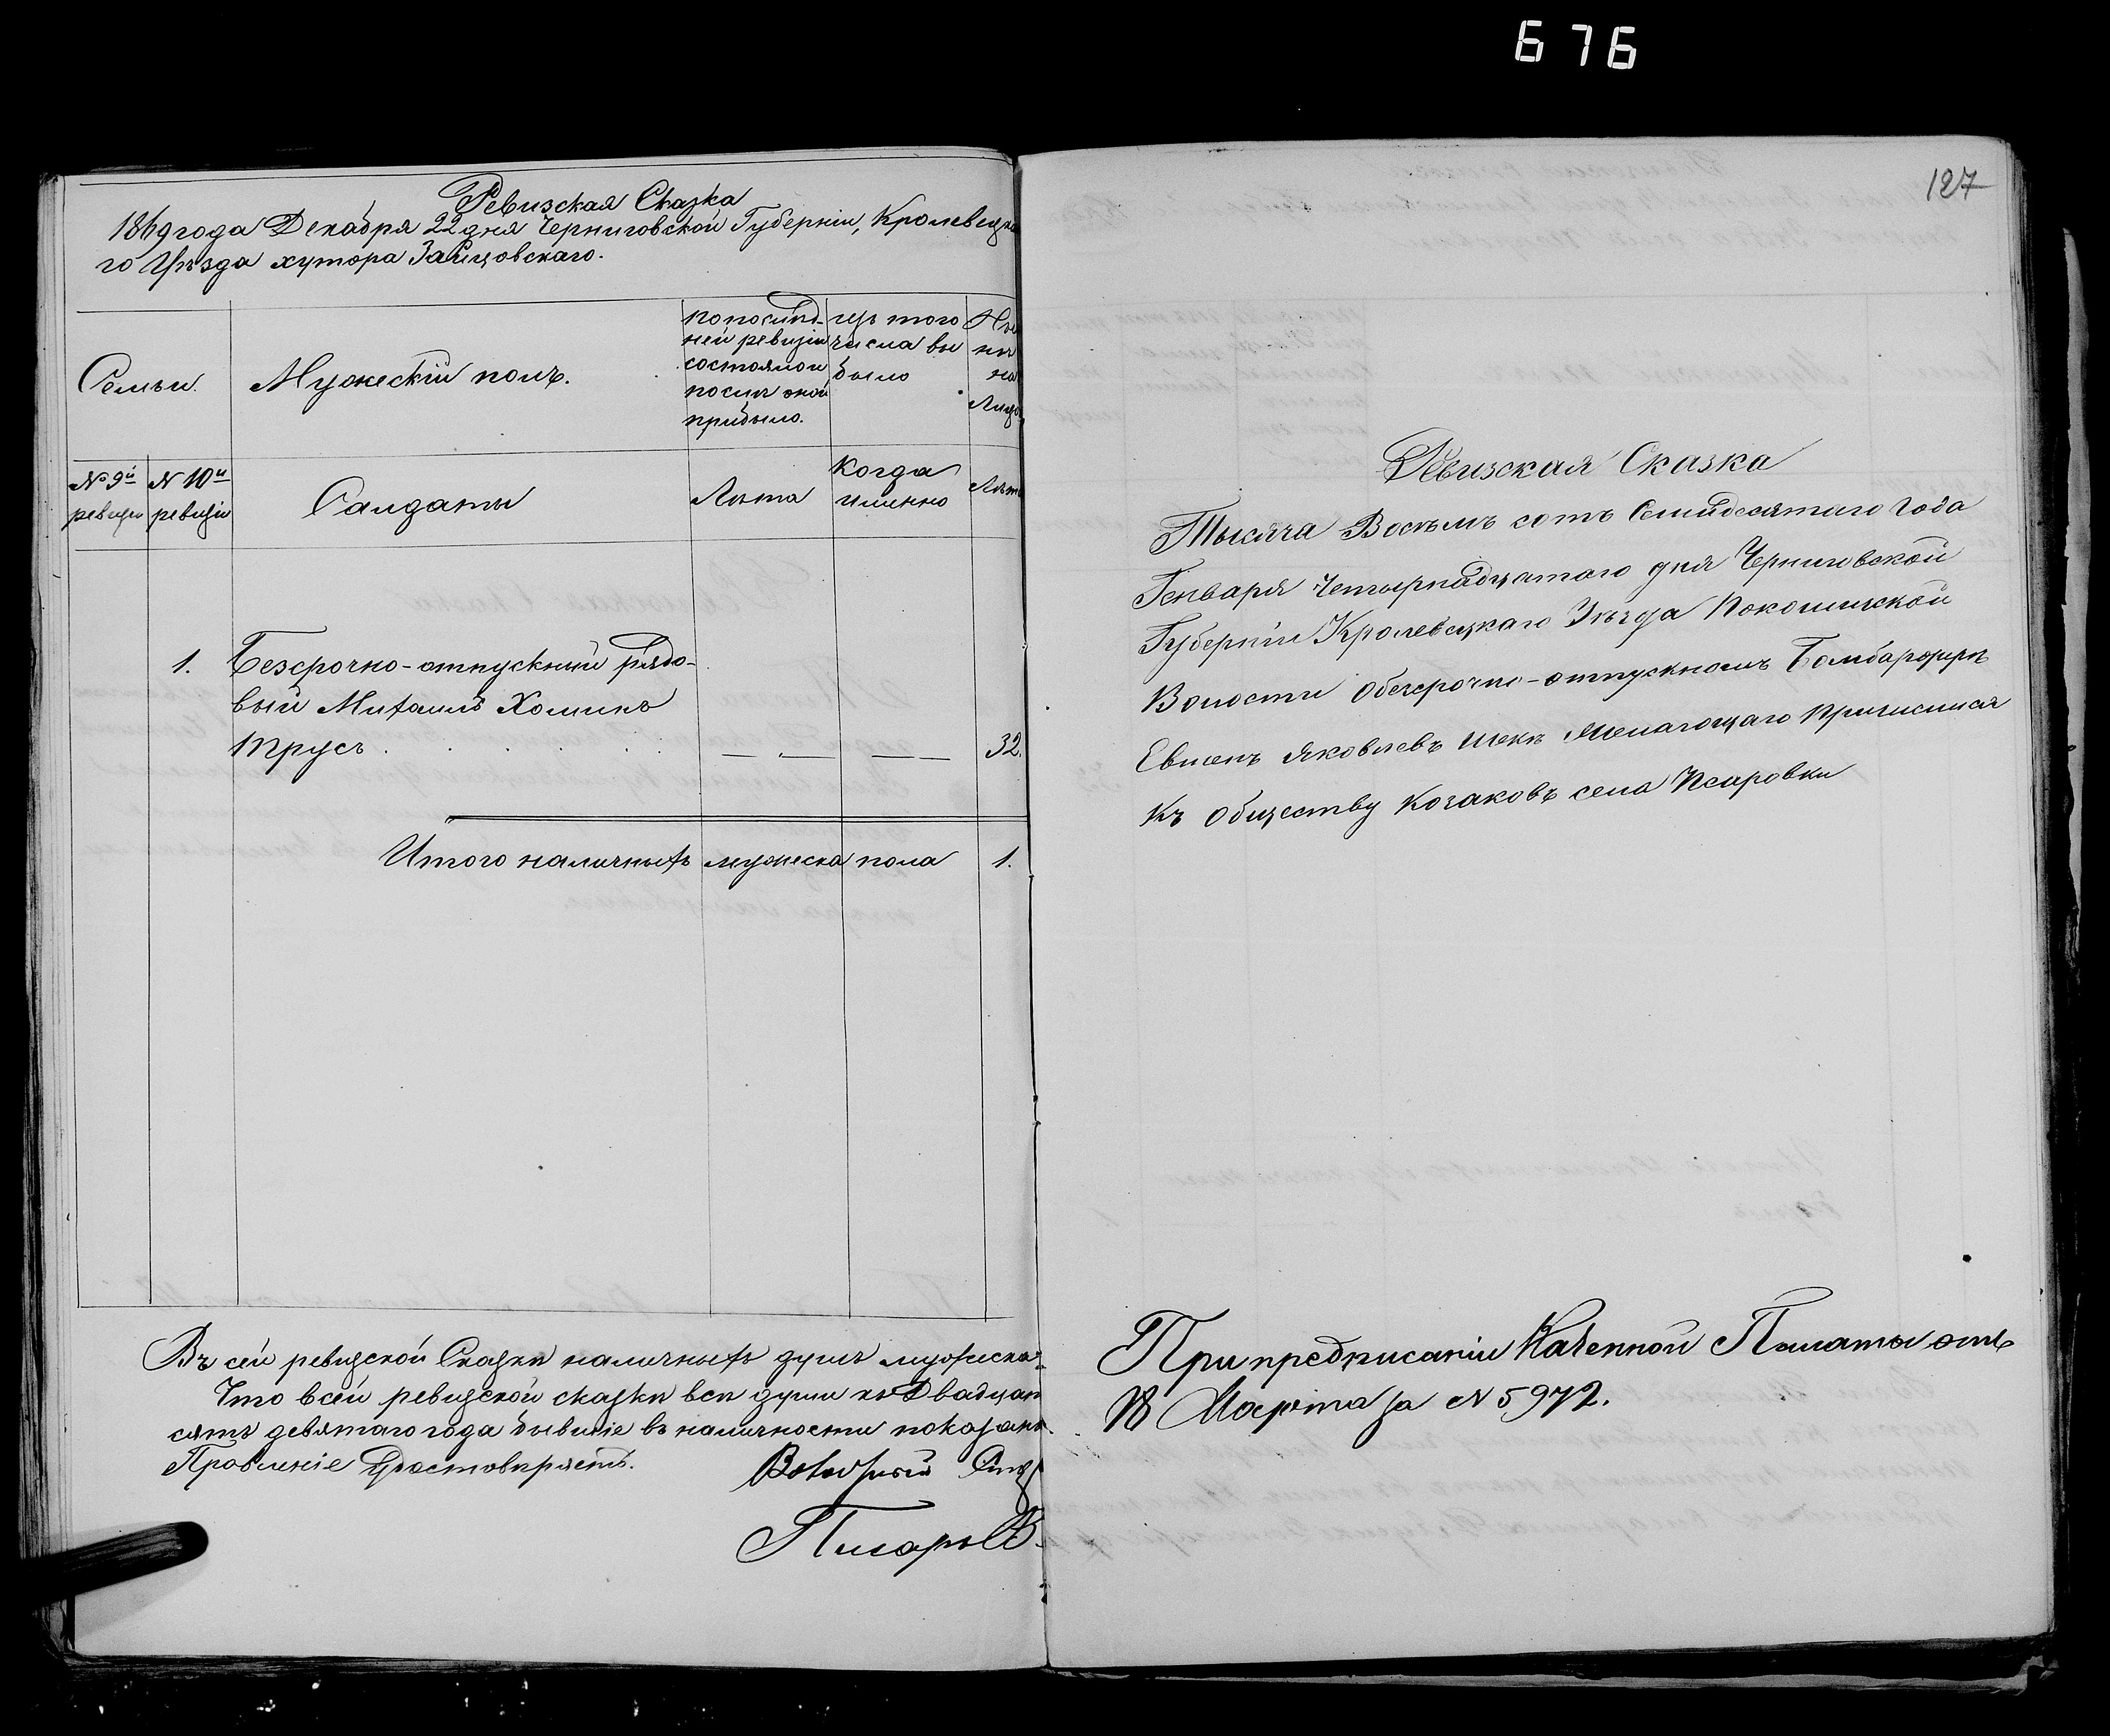 676
Ревизская Сказка
1869 года Декабря 22 дня Черниговской Губерніи, Кролевецка
го Уѣзда хутора Зайцовскаго.
Семьи.
Мужескій полъ.
по послѣд-
ней ревизіи
состояло и
послѣ оной
прибыло.
изъ того
числа вы
было
Ны
нѣ
на
Лицо
№ 9й
ревизіи
№ 10й
ревизіи
Салдаты
Лѣта
Когда
именно
Лѣта
1. Безсрочно-отпускный рядо-
вый Михаилъ Хоминъ
Трусъ . . . . . . 32.
Итого наличныхъ мужеска пола 1.
Въ сей ревизской Сказки наличныхъ душъ мужеска-
Что в сей ревизской сказки всѣ души по Двадцат
сятъ девятаго года бывшіе въ наличности показаны
Правленіе Удостовѣряетъ.
Волостный Ст
Писарь В
127
Ревизская Сказка
Тысяча Восѣмъ сотъ Семидесятаго Года
Генваря Четырнадцатаго дня Черниговской
Губерніи Кролевецкаго Уѣзда Покошичской
Волости о безсрочно-отпускномъ Бомбардирѣ
Яковлевъ желающаго причислится
къ Обществу Козаковъ села Псаровки
При предписаніи Казенной Палаты отъ
18 Марта за № 5972.